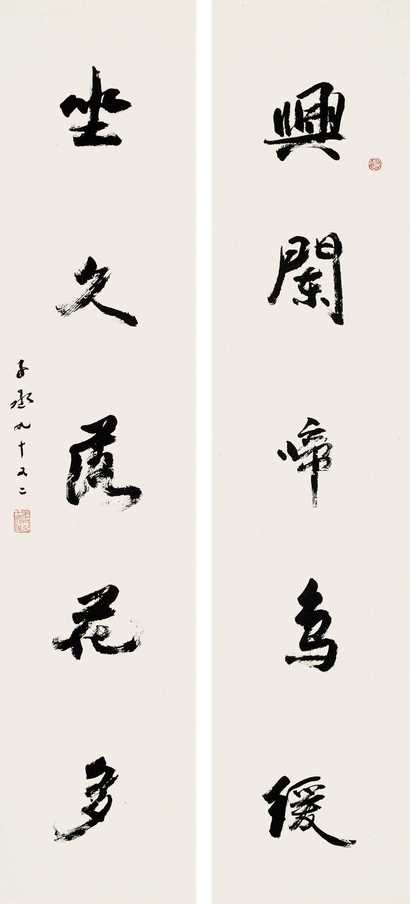 興闌啼鳥緩
坐久落花多
子丞九十又二